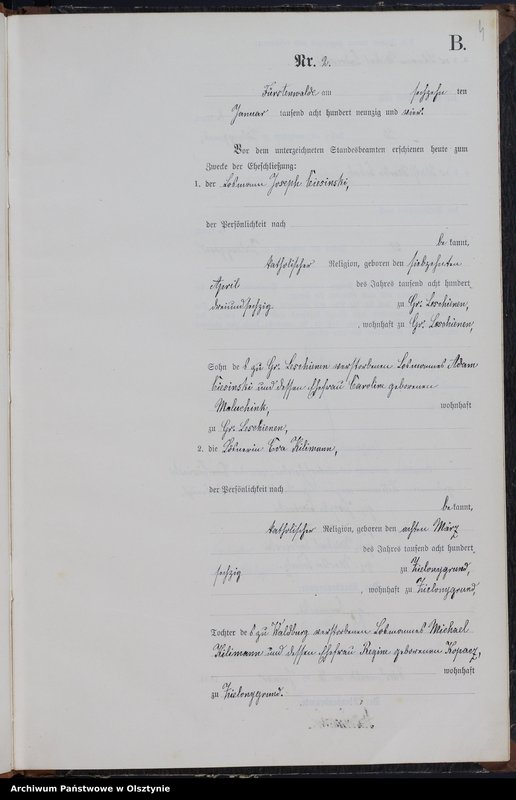 B.
Nr. 2.
Fürstenwalde am sechzehn ten
Januar tausend acht hundert neunzig und vier.
Vor dem unterzeichneten Standesbeamten erschienen heute zum
Zwecke der Eheschließung:
1. der Losmann Joseph Ciesinski,
der Persönlichkeit nach
be kannt,
katholischer Religion, geboren den siebzehnten
April des Jahres tausend acht hundert
dreiundsechzig zu Gr. Leschienen,
, wohnhaft zu Gr. Leschienen,
Sohn des zu Gr. Leschienen verstorbenen Losmannes Adam
Ciesinski und dessen Ehefrau Caroline geborenen
wohnhaft
zu Gr. Leschienen,
2. die Eva Kilimann,
der Persönlichkeit nach
be kannt,
katholischer Religion, geboren den achten März
des Jahres tausend acht hundert
sechzig zu Zielonygrund,
, wohnhaft zu Zielonygrund,
Tochter des zu Waldburg verstorbenen Losmannes Michael
Kilimann und dessen Ehefrau Regine geborenen Kopacz,
wohnhaft
zu Zielonygrund.
Archiwum Państwowe w Olsztynie